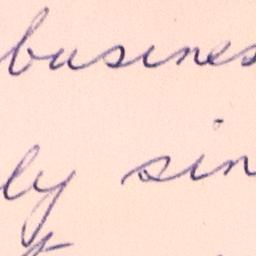 busines
ly sin